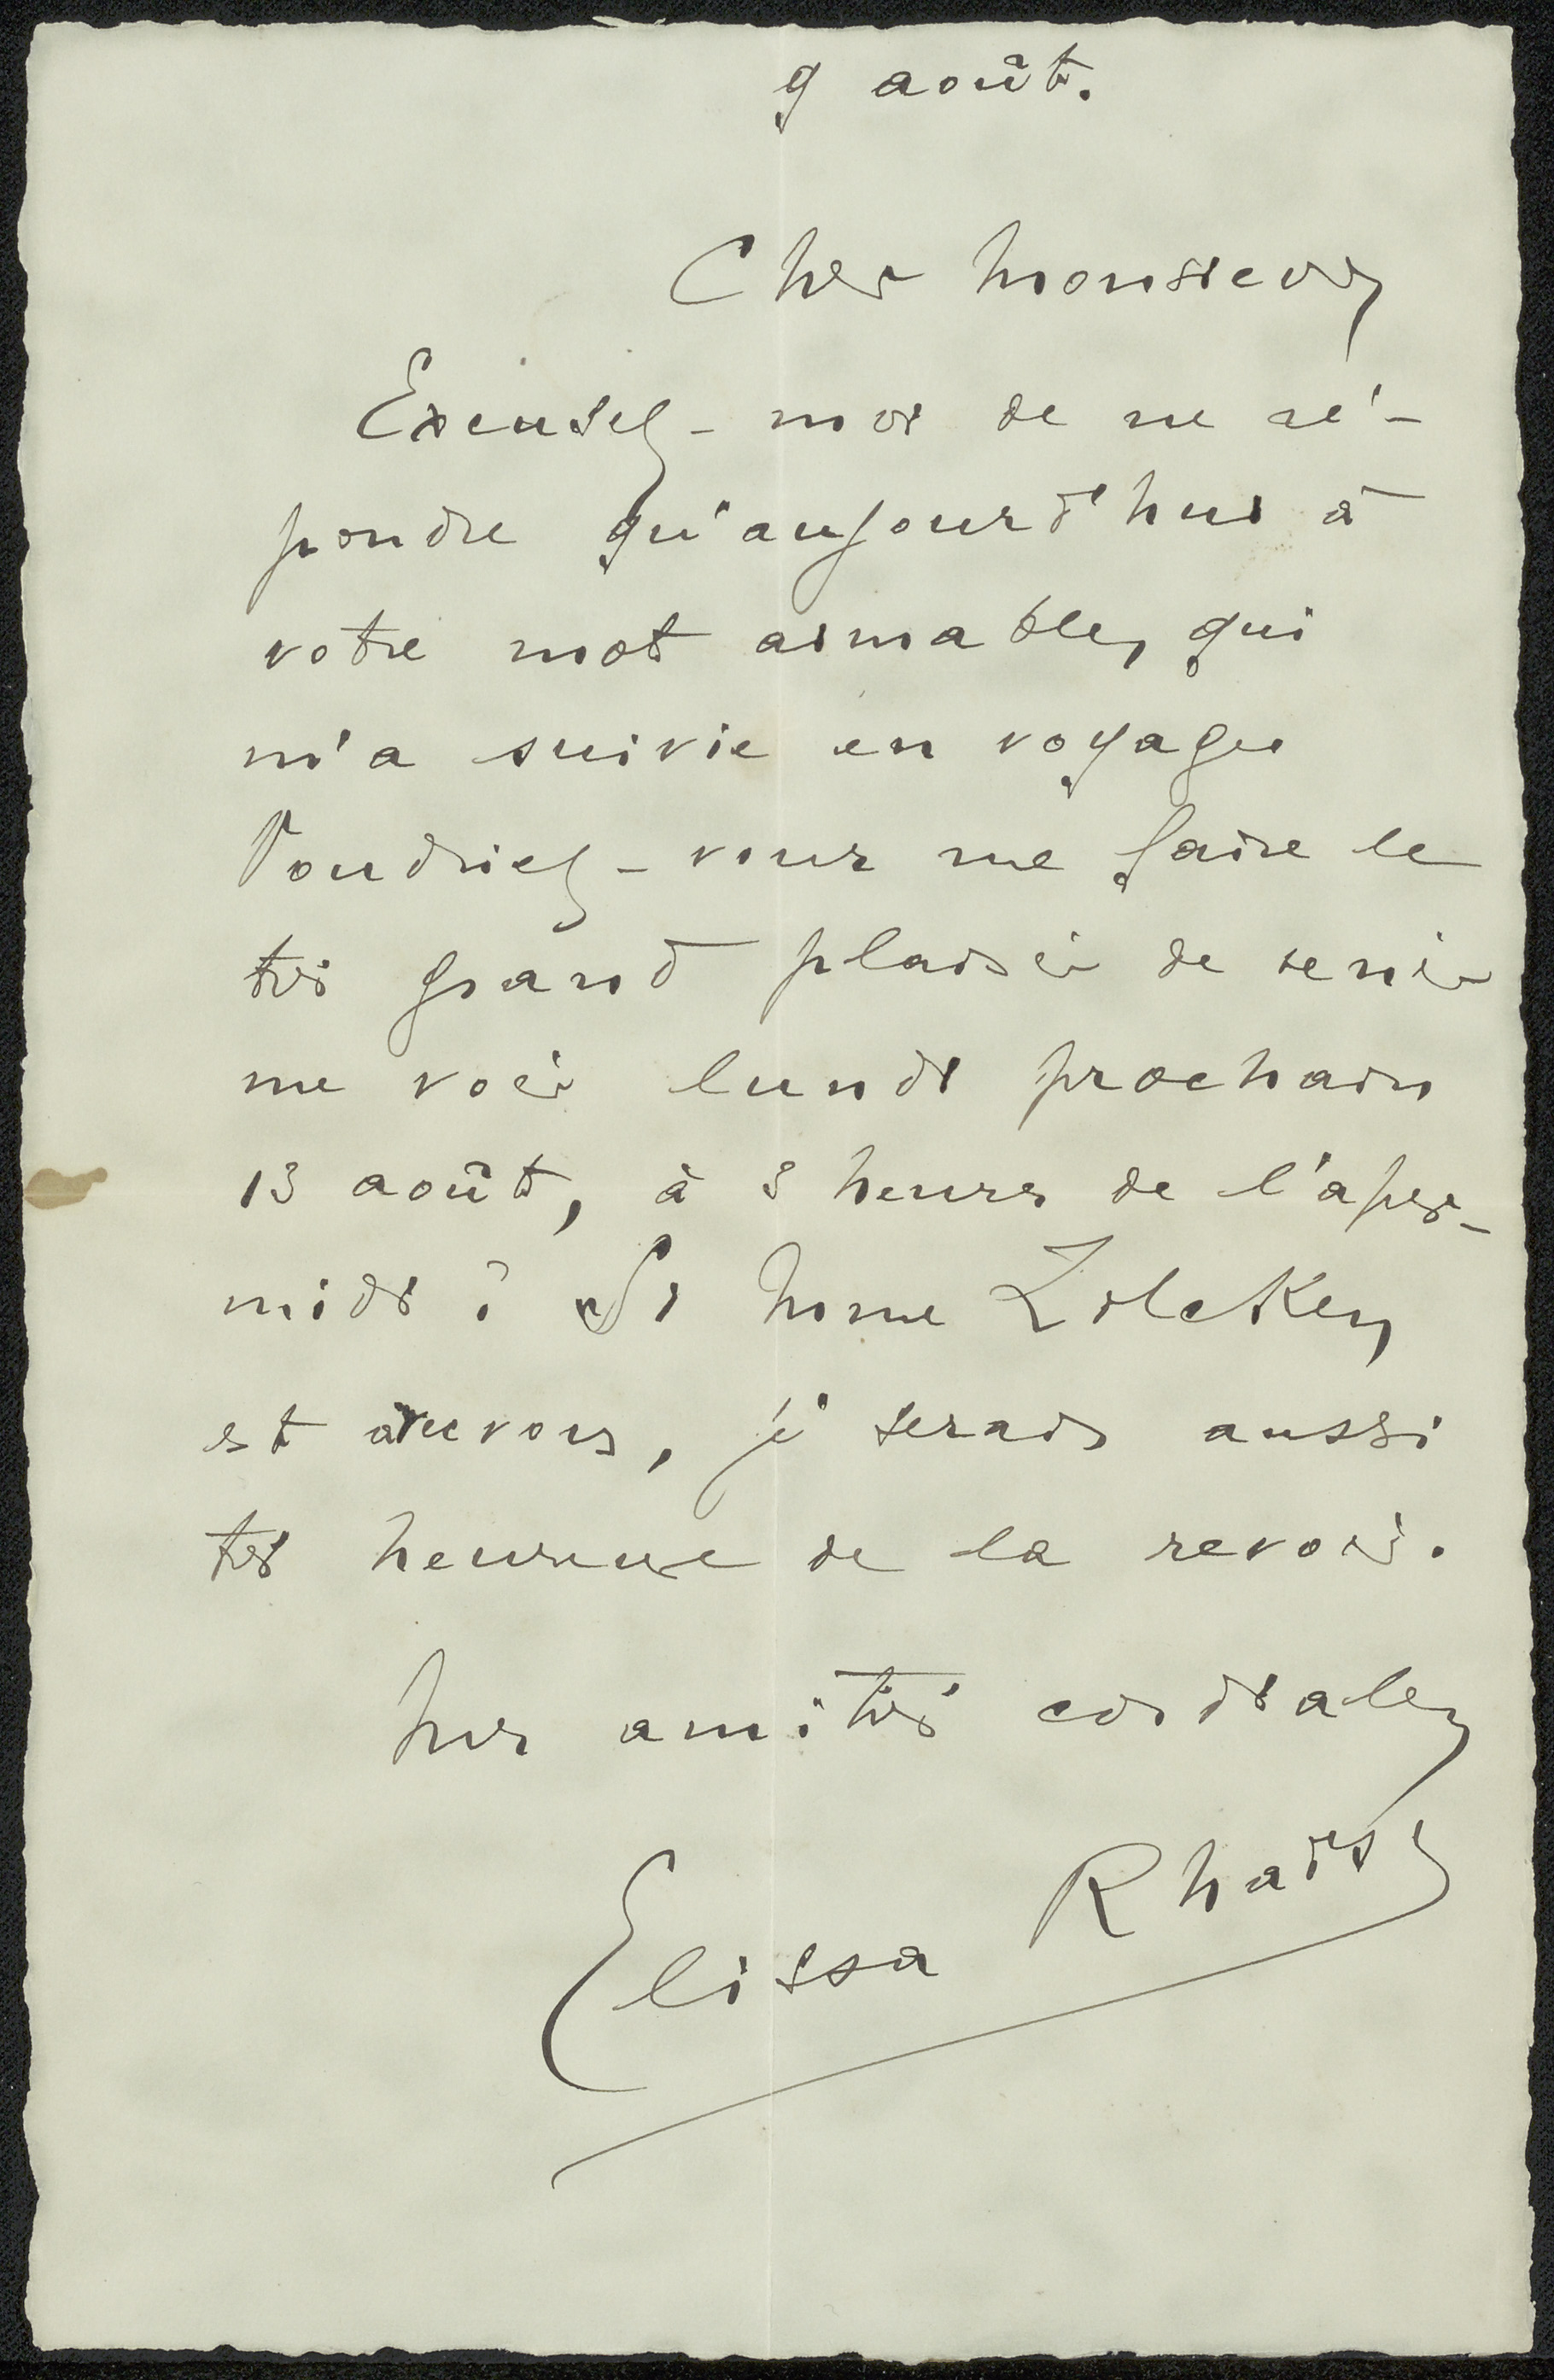 9 août.
Cher Monsieur,
Excusez-moi de ne ré-
pondre qu'aujourd'hui à
votre mot aimable, qui
m'a suivie en voyage
Voudriez-vous me faire le
très grand plaisir de venir
me voir lundi prochain
13 août, à 3 heures de l'après-
midi ? Si Mme Zilcken,
est avec vous, je serais aussi
très heureuse de la revoir.
Mes amitiés cordiales,
Elissa Rhaïs